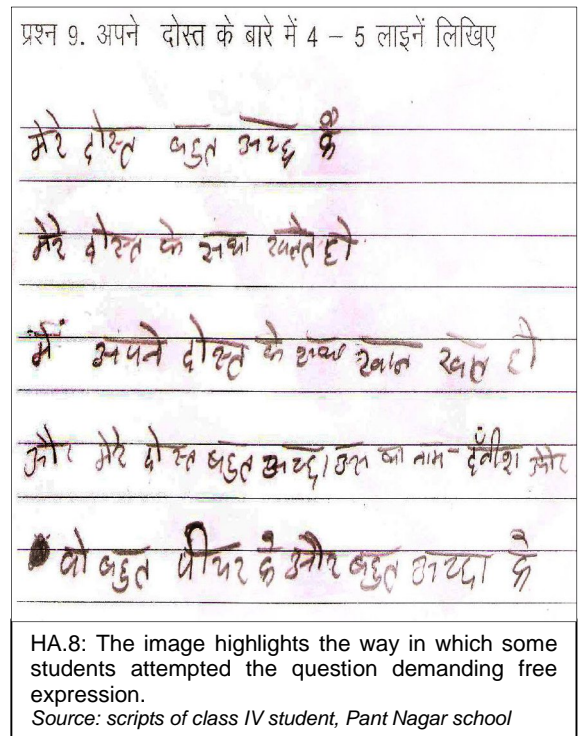 प्रश्न 9. अपने दोस्त के बारे में 4 – 5 लाइनें लिखिए
मेरे दोस्त बहुत अच्छ कै
मेरे दोस्त के सथा खेलते हो
में अपने दोस्त के सथा खेल हो
और मेरे दोस्त बहुत अच्छा उस का नाम और
वो बहुत के और बहुत अच्छा के
HA.8: The image highlights the way in which some
students attempted the question demanding free
expression.
Source: scripts of class IV student, Pant Nagar school